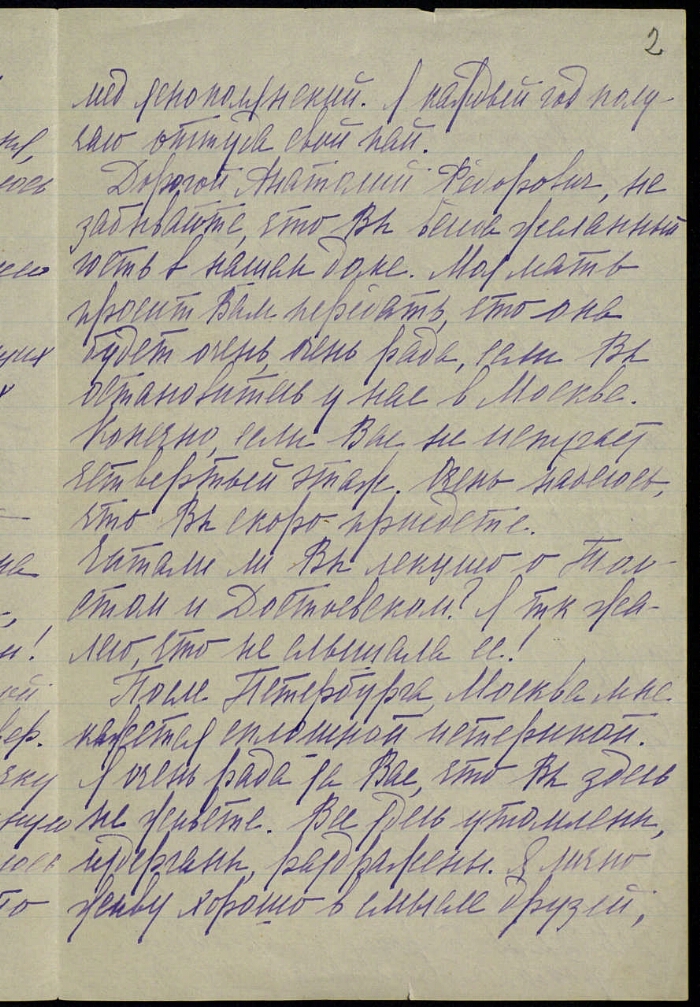 2
мед яснополянский. Я каждый год полу-
чаю оттуда свой пай.
Дорогой Анатолий Фёдорович, не
забывайте, что Вы всегда желанный
гость в нашем доме. Моя мать
просит Вам передать, что она
будет очень, очень рада, если Вы
остановитесь у нас в Москве.
Конечно, если Вас не испугает
четвертый этаж. Очень надеюсь,
что Вы скоро приедете.
Читали ли Вы лекцию о Тол-
стом и Достоевском? Я так жа-
лею, что не слышала ее!
После Петербурга, Москва мне
кажется сплошной истерикой.
Я очень рада за Вас, что Вы здесь
не живете. Все здесь утомлены,
издерганы, раздражены. Я лично
живу хорошо в смысле друзей,